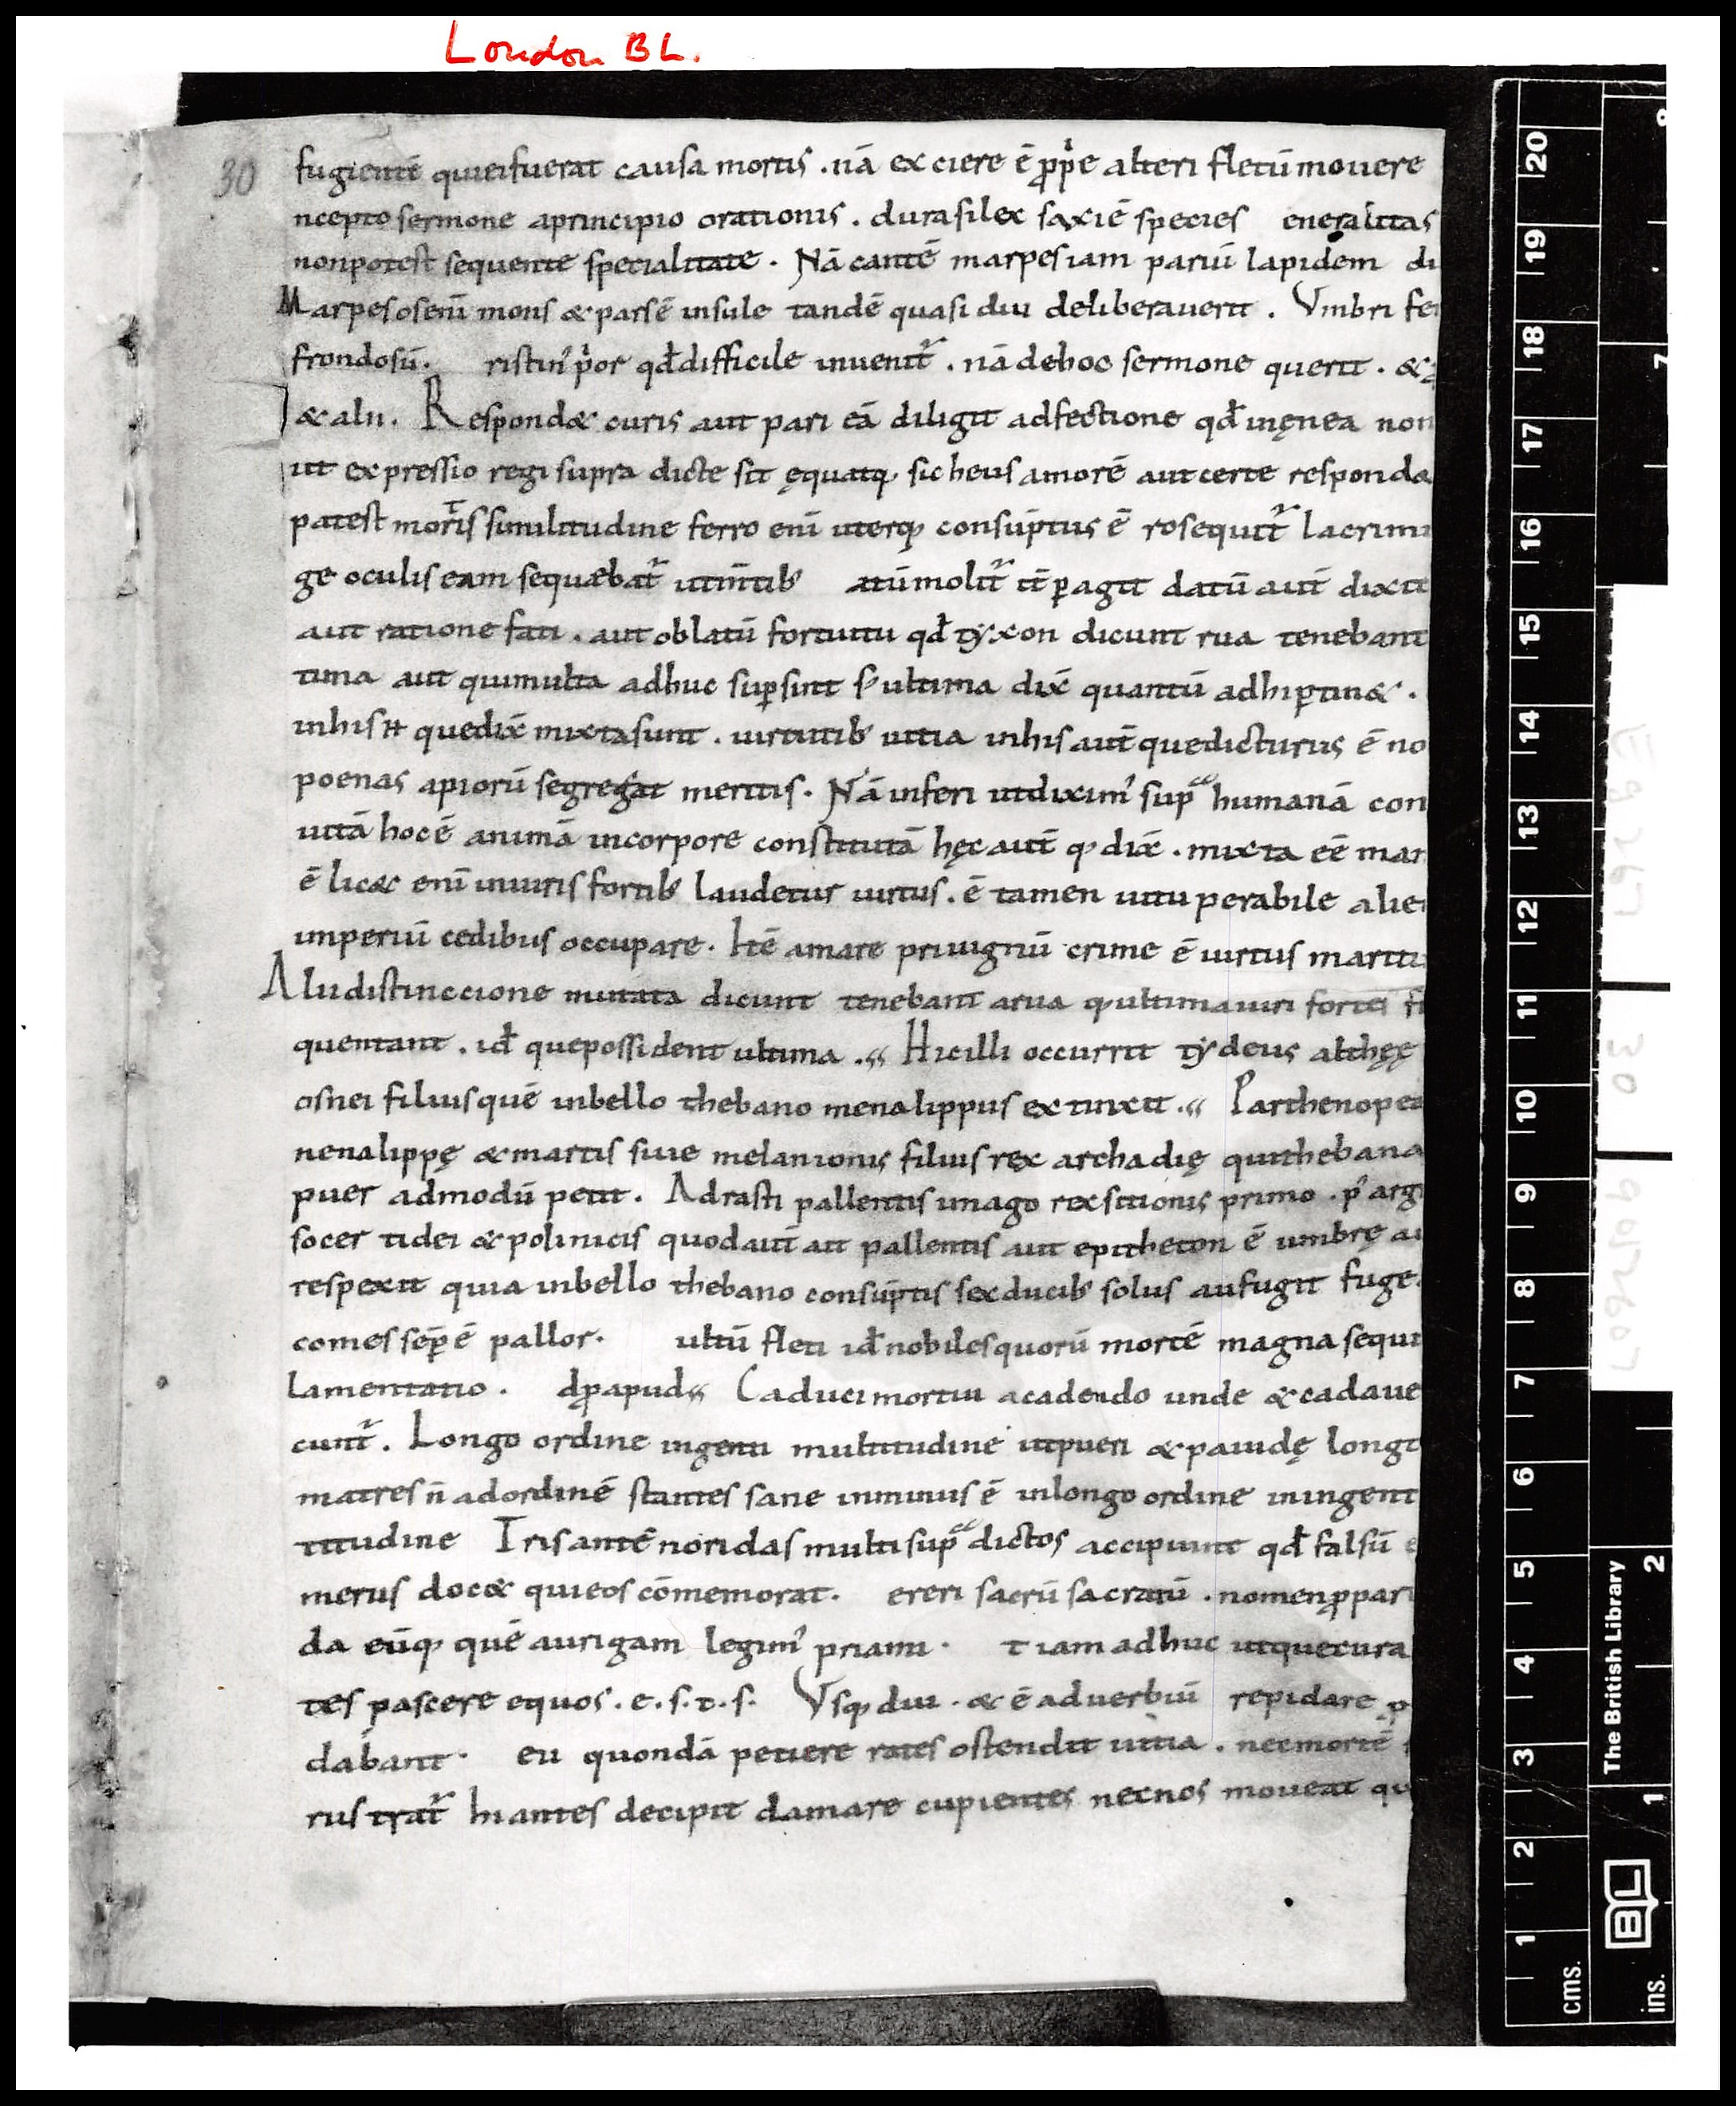 London BL.
30
fugientē quieifuerat causa mortis . nā exciere ē ꝓprie alteri fletū mouere
ncepto sermone aprincipio orationis . dura silex saxi ē species eneralitas
nonpotest sequente specialitate . Nā cautē marpesiam pariū lapidem di
Marpesos enī mons & pars ē insule tandē quasi diu deliberauerit . Vmbri fe
frondosū . ristin' prior qđ difficile inuenit᷑ . nā dehoc sermone querit . &
& alii . Respond& curis aut pari eā diligit adfectione qđ inęnea non
ut expressio regi supra dicte sit ęquatq; sicheus amorē aut certe responda
patest mortis similitudine ferro enī uterq; consūptus ē rosequit᷑ lacrimi
ge oculis eam sequæbat᷑ utīntib; atū molit᷑ it̄ ꝑagit datū aut̄ dixit
aut ratione fati . aut oblatū fortuitu qđ tẏxon dicunt rua tenebant
tima aut quimulta adhuc suꝑsint s; ultima dix̄ quantū adhiꝑtin& .
inhis H quedix̄ mixta sunt . uirtutib; uitia inhis aut̄ quedicturus ē no
poenas apiorū segregat meritis . Nā inferi utdixim' supra humanā con
uitā hoc ē animā incorpore constitutā hęc aut̄ q; dix̄ . mixta eē mar
ē lic& enī inuiris fortib; laudetur uirtus . ē tamen uitu perabile alie
imperiū cedibus occupare . Itē amare priuignū crime ē uirtus mariti
Alii distinccione mutata dicunt tenebant arua q; ultima uiri fortes fr
quentant . id̄ quepossident ultima . Hicilli occurrit tẏdeus althęę
osnei filius quē inbello thebano menalippus extinxit . Parthenopea
nenalippę & martis siue melanionis filius rex archadię quithebana
puer admodū petiit . Adrasti pallentis imago rex sitionis primo . p' argi
socer tidei & polinicis quod aut̄ ait pallentis aut epitheton ē umbrę au
respexit quia inbello thebano consūptis sex ducib; solus aufugit fuge
comes sēꝑ ē pallor . ultū fleti id̄ nobiles quorū mortē magna sequi
lamentatio . đ ꝓ apud Caduci mortui acadendo unde & cadaue
cunt᷑ . Longo ordine ingenti multitudine utpueri & pauidę longt
matres n̄ adordinē stantes sane inminus ē inlongo ordine iningent
titudine Tris antē noridas multi supra dictos accipiunt qđ falsū e
merus doc& quieos cōmemorat . ereri sacrū sacratū . nomen ꝓpari
da eūq; quē aurigam legim' priami . t iam adhuc utquecura
tes pascere equos . e . s . t . s . Vsq; diu . & ē aduerbiū repidare ꝓ
dabant . eu quondā petiere rates ostendit uitia . necmortē
rus trat᷑ hiantes decipit clamare cupientes necnos moueat qu
The British Library
BL
cms.
ins.
1
2
3
4
5
6
7
8
9
10
11
12
13
14
15
16
17
18
19
20
1
2
7